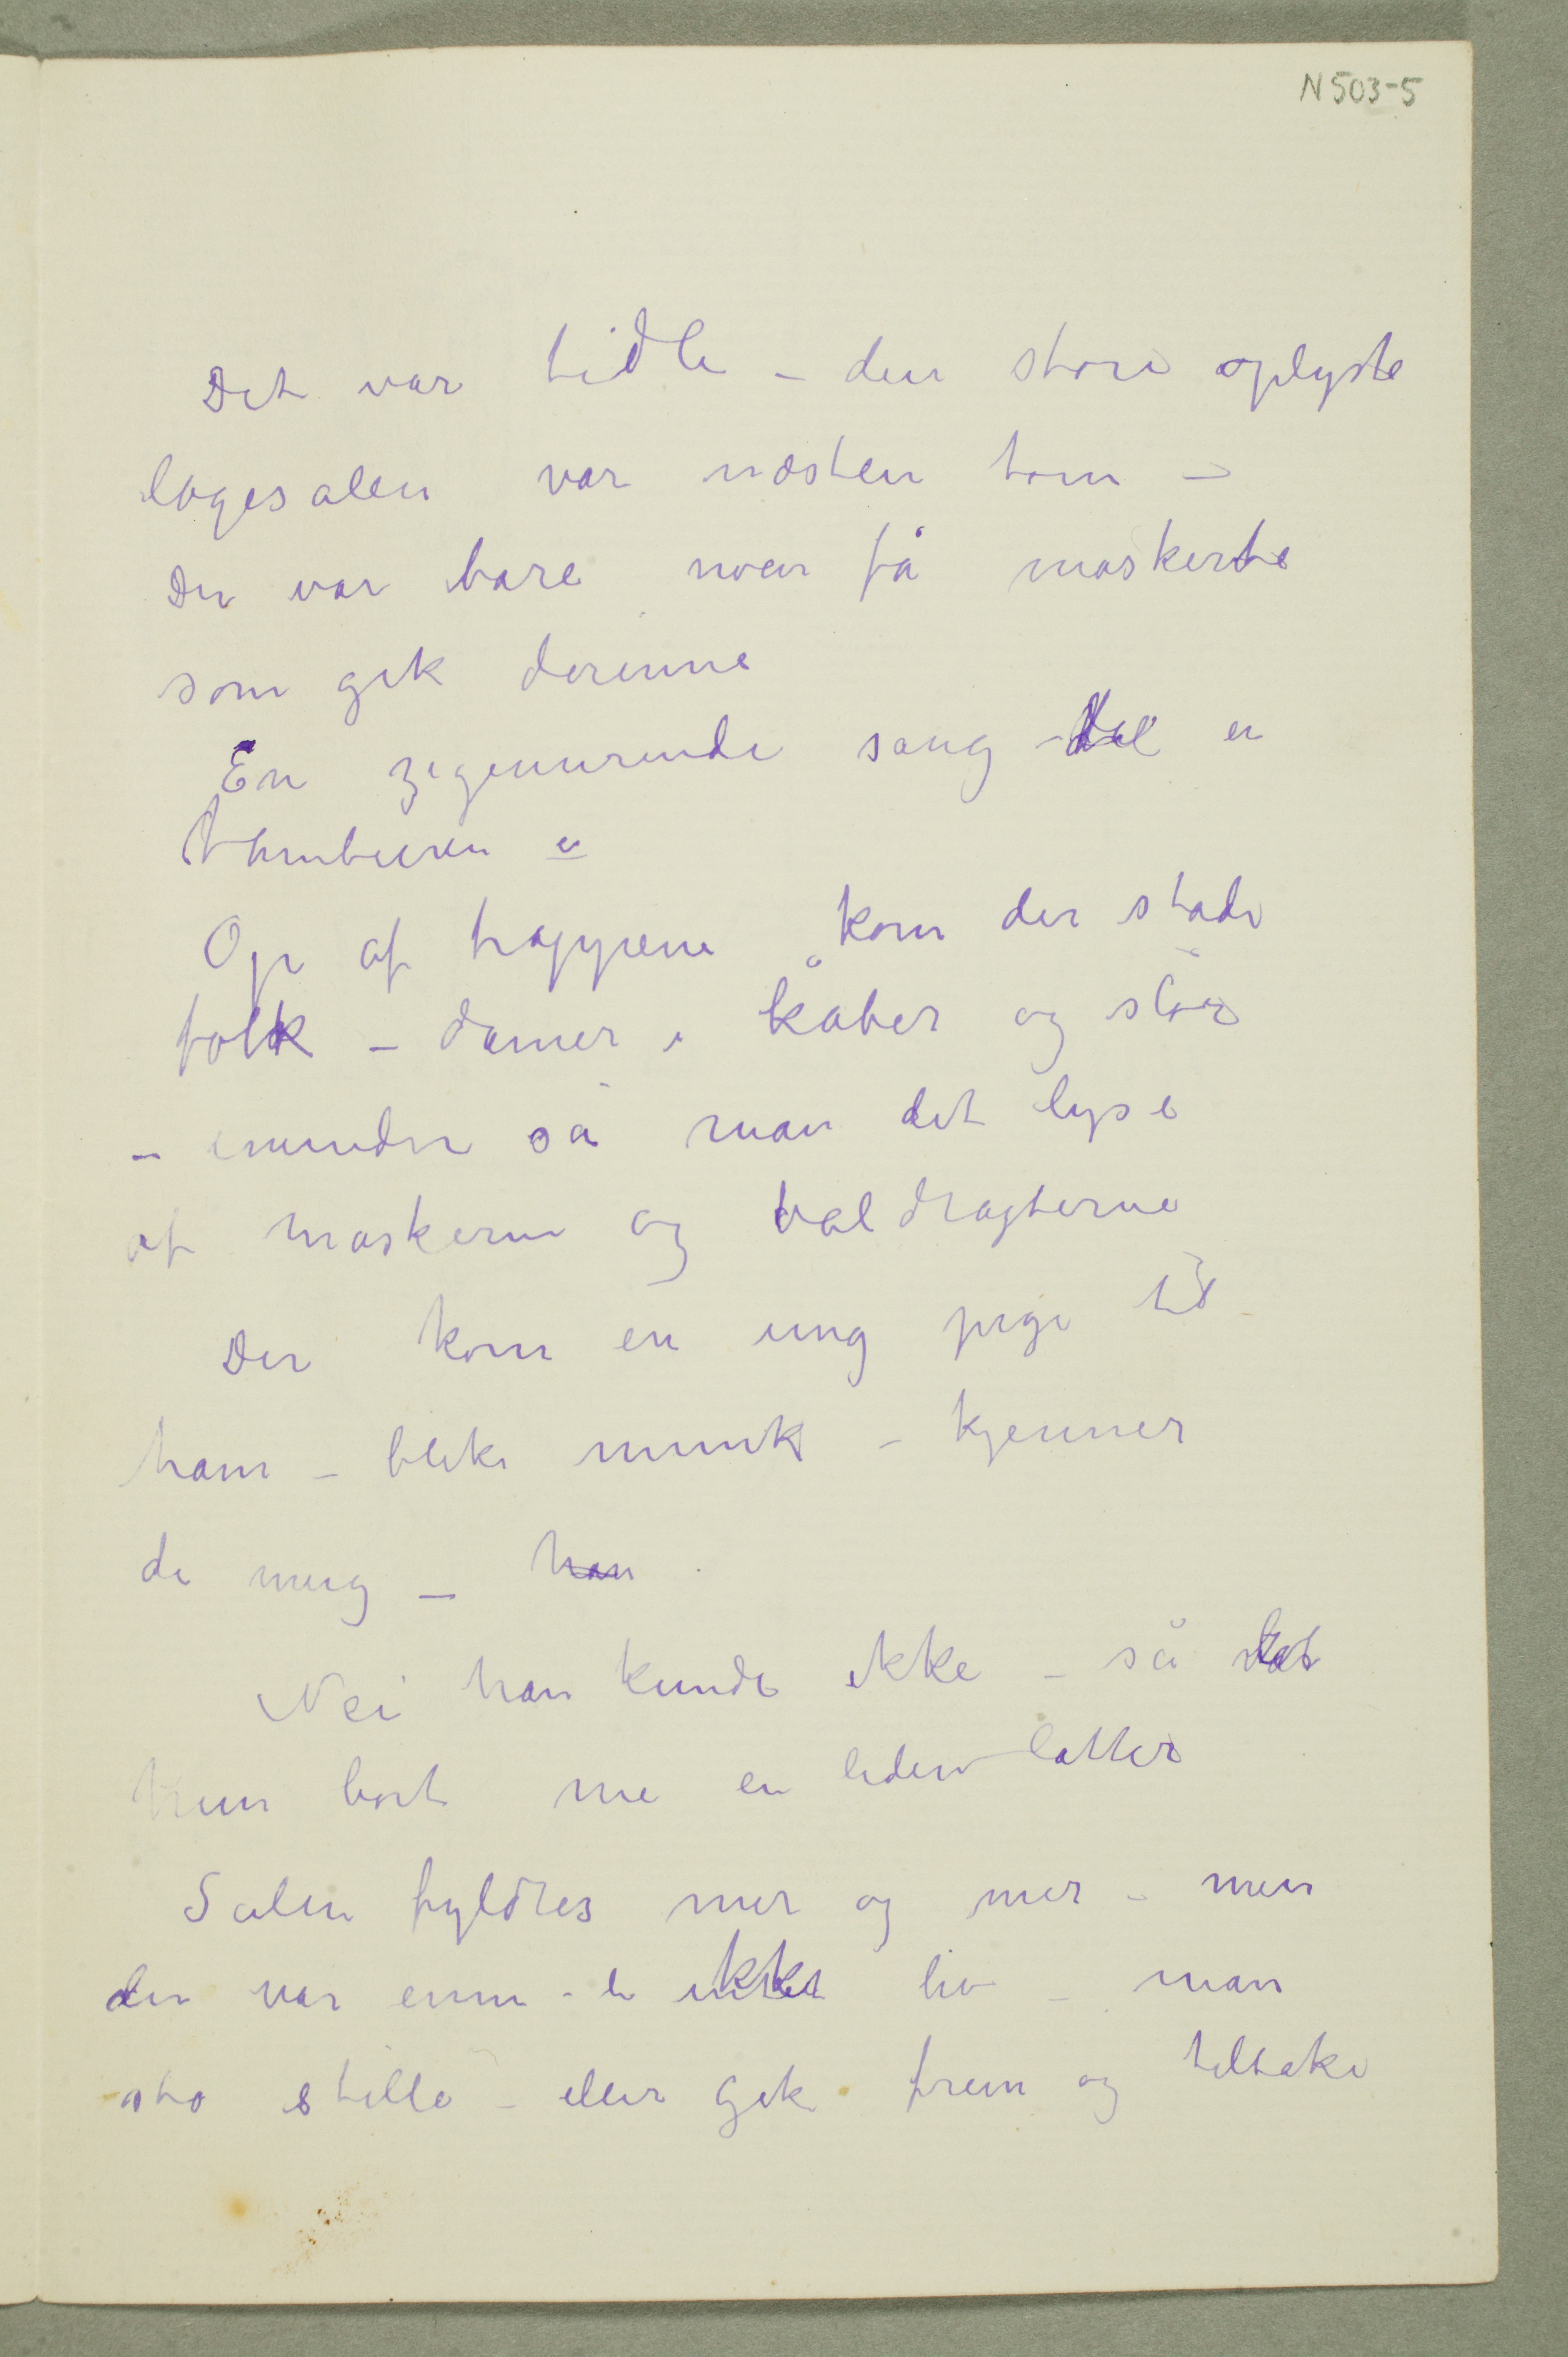 N 503-5
Det var tidli – den store oplyste
logesalen var næsten tom –
Der var bare noen få maskerte
som gik derinne
En zigeunerinde sang – en
tamburin
Op af trappene kom der stadi
folk – damer i kåber og slør
– inunder så man det lyse
af maskerne og baldragterne
Der kom en ung pige til
ham – bleke munk – kjenner
de meig – han
Nei han kunde ikke – så
hun bort me en liden latter
Salen fyldtes mer og mer – men
der var enn ikke liv – man
sto stille – eller gik frem og tilbake